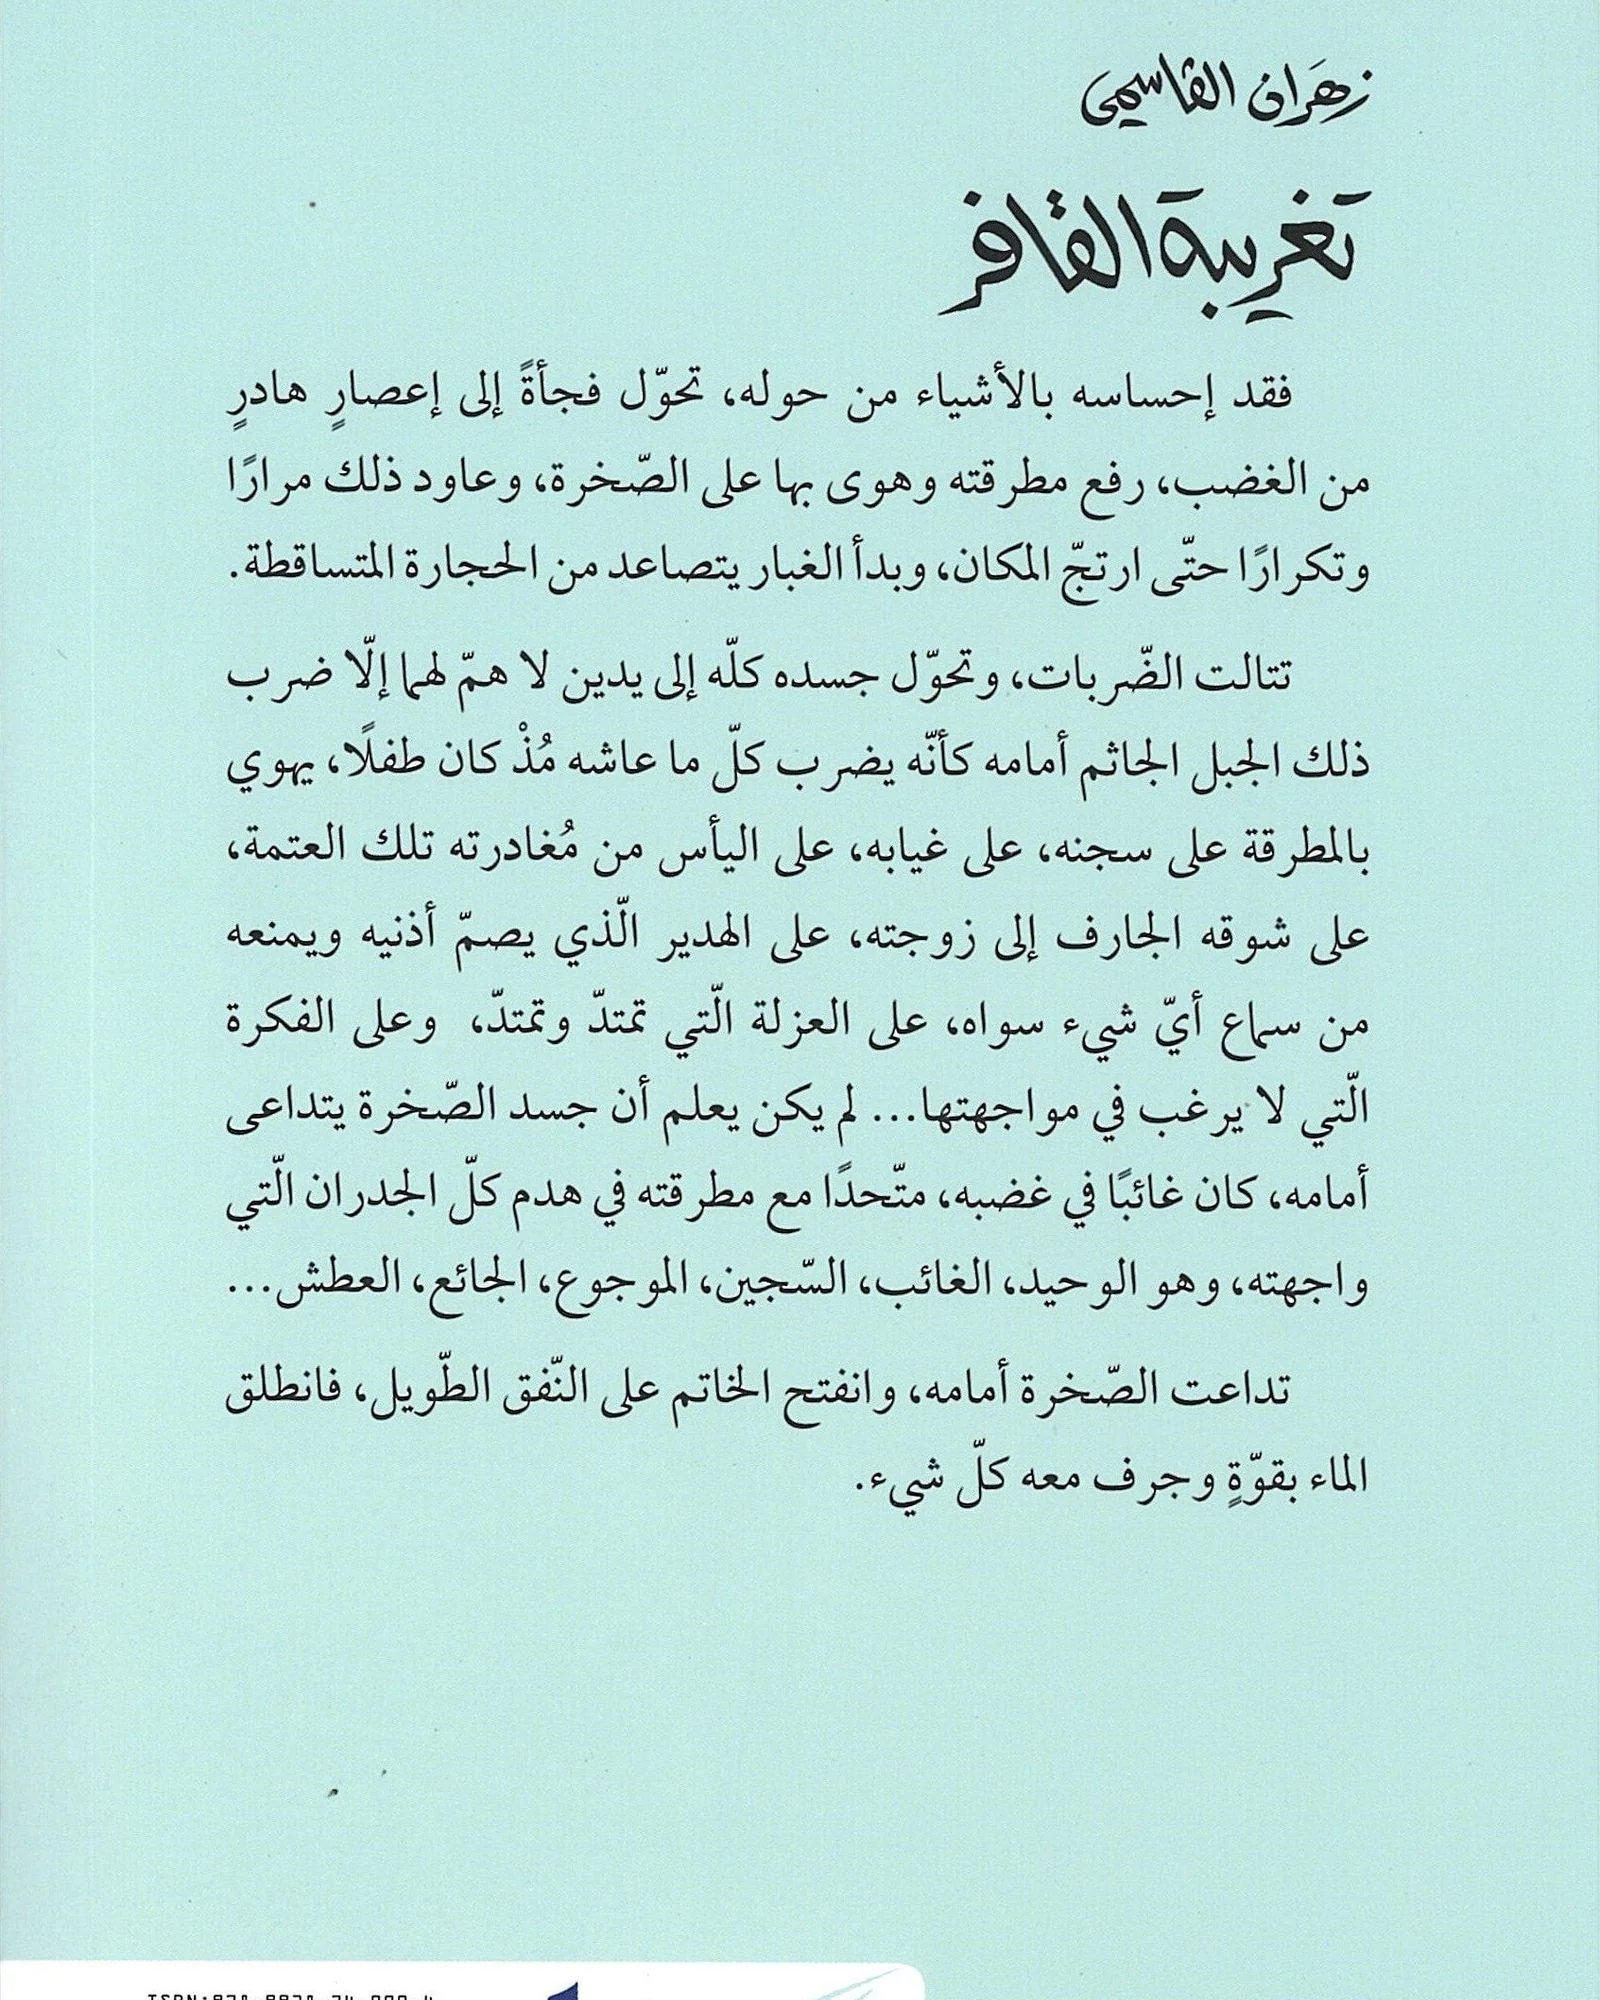 زهران القاسمي
تغريبة القافر
فقد إحساسه بالأشياء من حوله، تحوّل فجأةً إلى إعصارٍ هادرٍ
من الغضب، رفع مطرقته وهوى بها على الصّخرة، وعاود ذلك مرارًا
وتكرارًا حتّى ارتجّ المكان، وبدأ الغبار يتصاعد من الحجارة المتساقطة.
تتالت الضّربات، وتحوّل جسده كلّه إلى يدين لا همّ لهما إلّا ضرب
ذلك الجبل الجاثم أمامه كأنّه يضرب كلّ ما عاشه مُذْ كان طفلًا، يهوي
بالمطرقة على سجنه، على غيابه، على اليأس من مُغادرته تلك العتمة،
على شوقه الجارف إلى زوجته، على الهدير الّذي يصمّ أذنيه ويمنعه
من سماع أيّ شيء سواه، على العزلة الّتي تمتدّ وتمتدّ، وعلى الفكرة
الّتي لا يرغب في مواجهتها... لم يكن يعلم أن جسد الصّخرة يتداعى
أمامه، كان غائبًا في غضبه، متّحدًا مع مطرقته في هدم كلّ الجدران الّتي
واجهته، وهو الوحيد، الغائب، السّجين، الموجوع، الجائع، العطش...
تداعت الصّخرة أمامه، وانفتح الخاتم على النّفق الطّويل، فانطلق
الماء بقوّةٍ وجرف معه كلّ شيء.